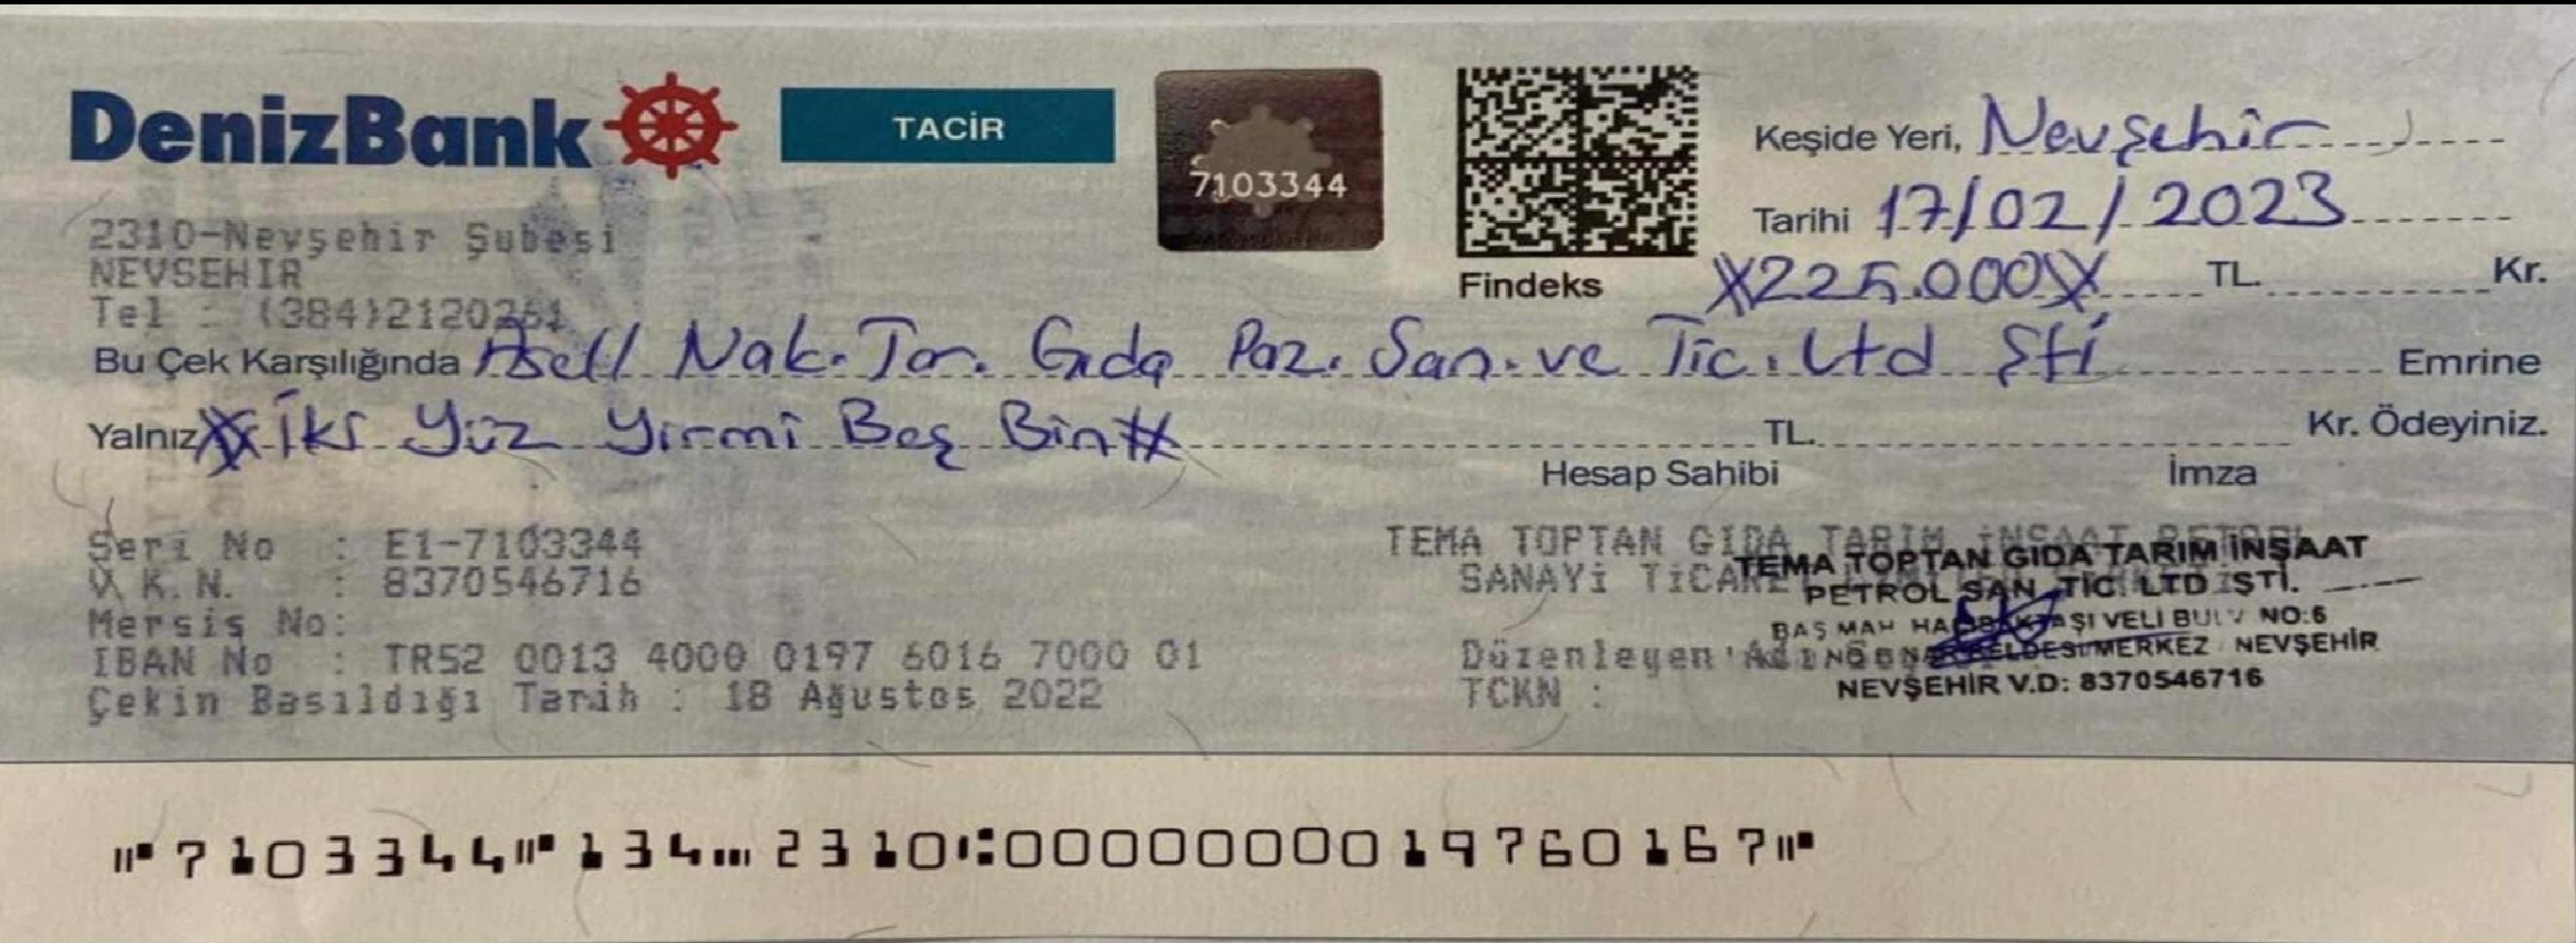 DenizBank
TACİR
7103344
Findeks
Keşide Yeri, Nevşehir
Tarihi 17/02/2023
X225.000X TL. Kr.
2310-Nevşehir Şubesi
NEVSEHIR
Tel : (384)2120261
Bu Çek Karşılığında Asell Nak. Tar. Gıda Paz. San. ve Tic. Ltd Şti Emrine
Yalnız XX İki Yüz Yirmi Beş Bin # TL. Kr. Ödeyiniz.
Hesap Sahibi İmza
Seri No : E1-7103344
V.K.N. : 8370546716
Mersis No:
IBAN No : TR52 0013 4000 0197 6016 7000 01
Çekin Basıldığı Tarih : 18 Ağustos 2022
TEMA TOPTAN GIDA TARIM İNŞAAT PETROL
SANAYİ TİCARET
Düzenleyen Adı
TCKN :
TEMA TOPTAN GIDA TARIM İNŞAAT
PETROL SAN. TİC. LTD. ŞTİ.
BAŞ MAH VELİ BULV NO:6
MERKEZ NEVŞEHİR
NEVŞEHİR V.D: 8370546716
7103344 134 2310 0000000019760167